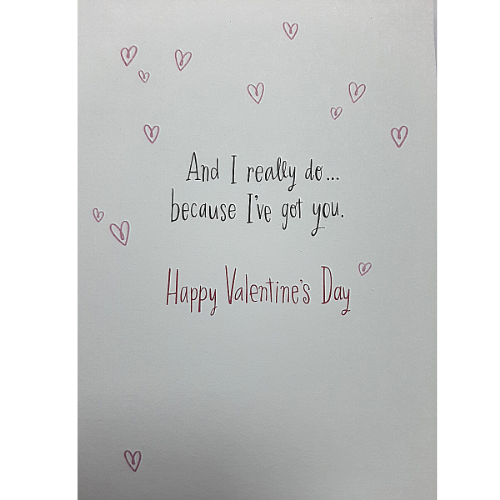 And I really do...
because I've got you.
Happy Valentine's Day